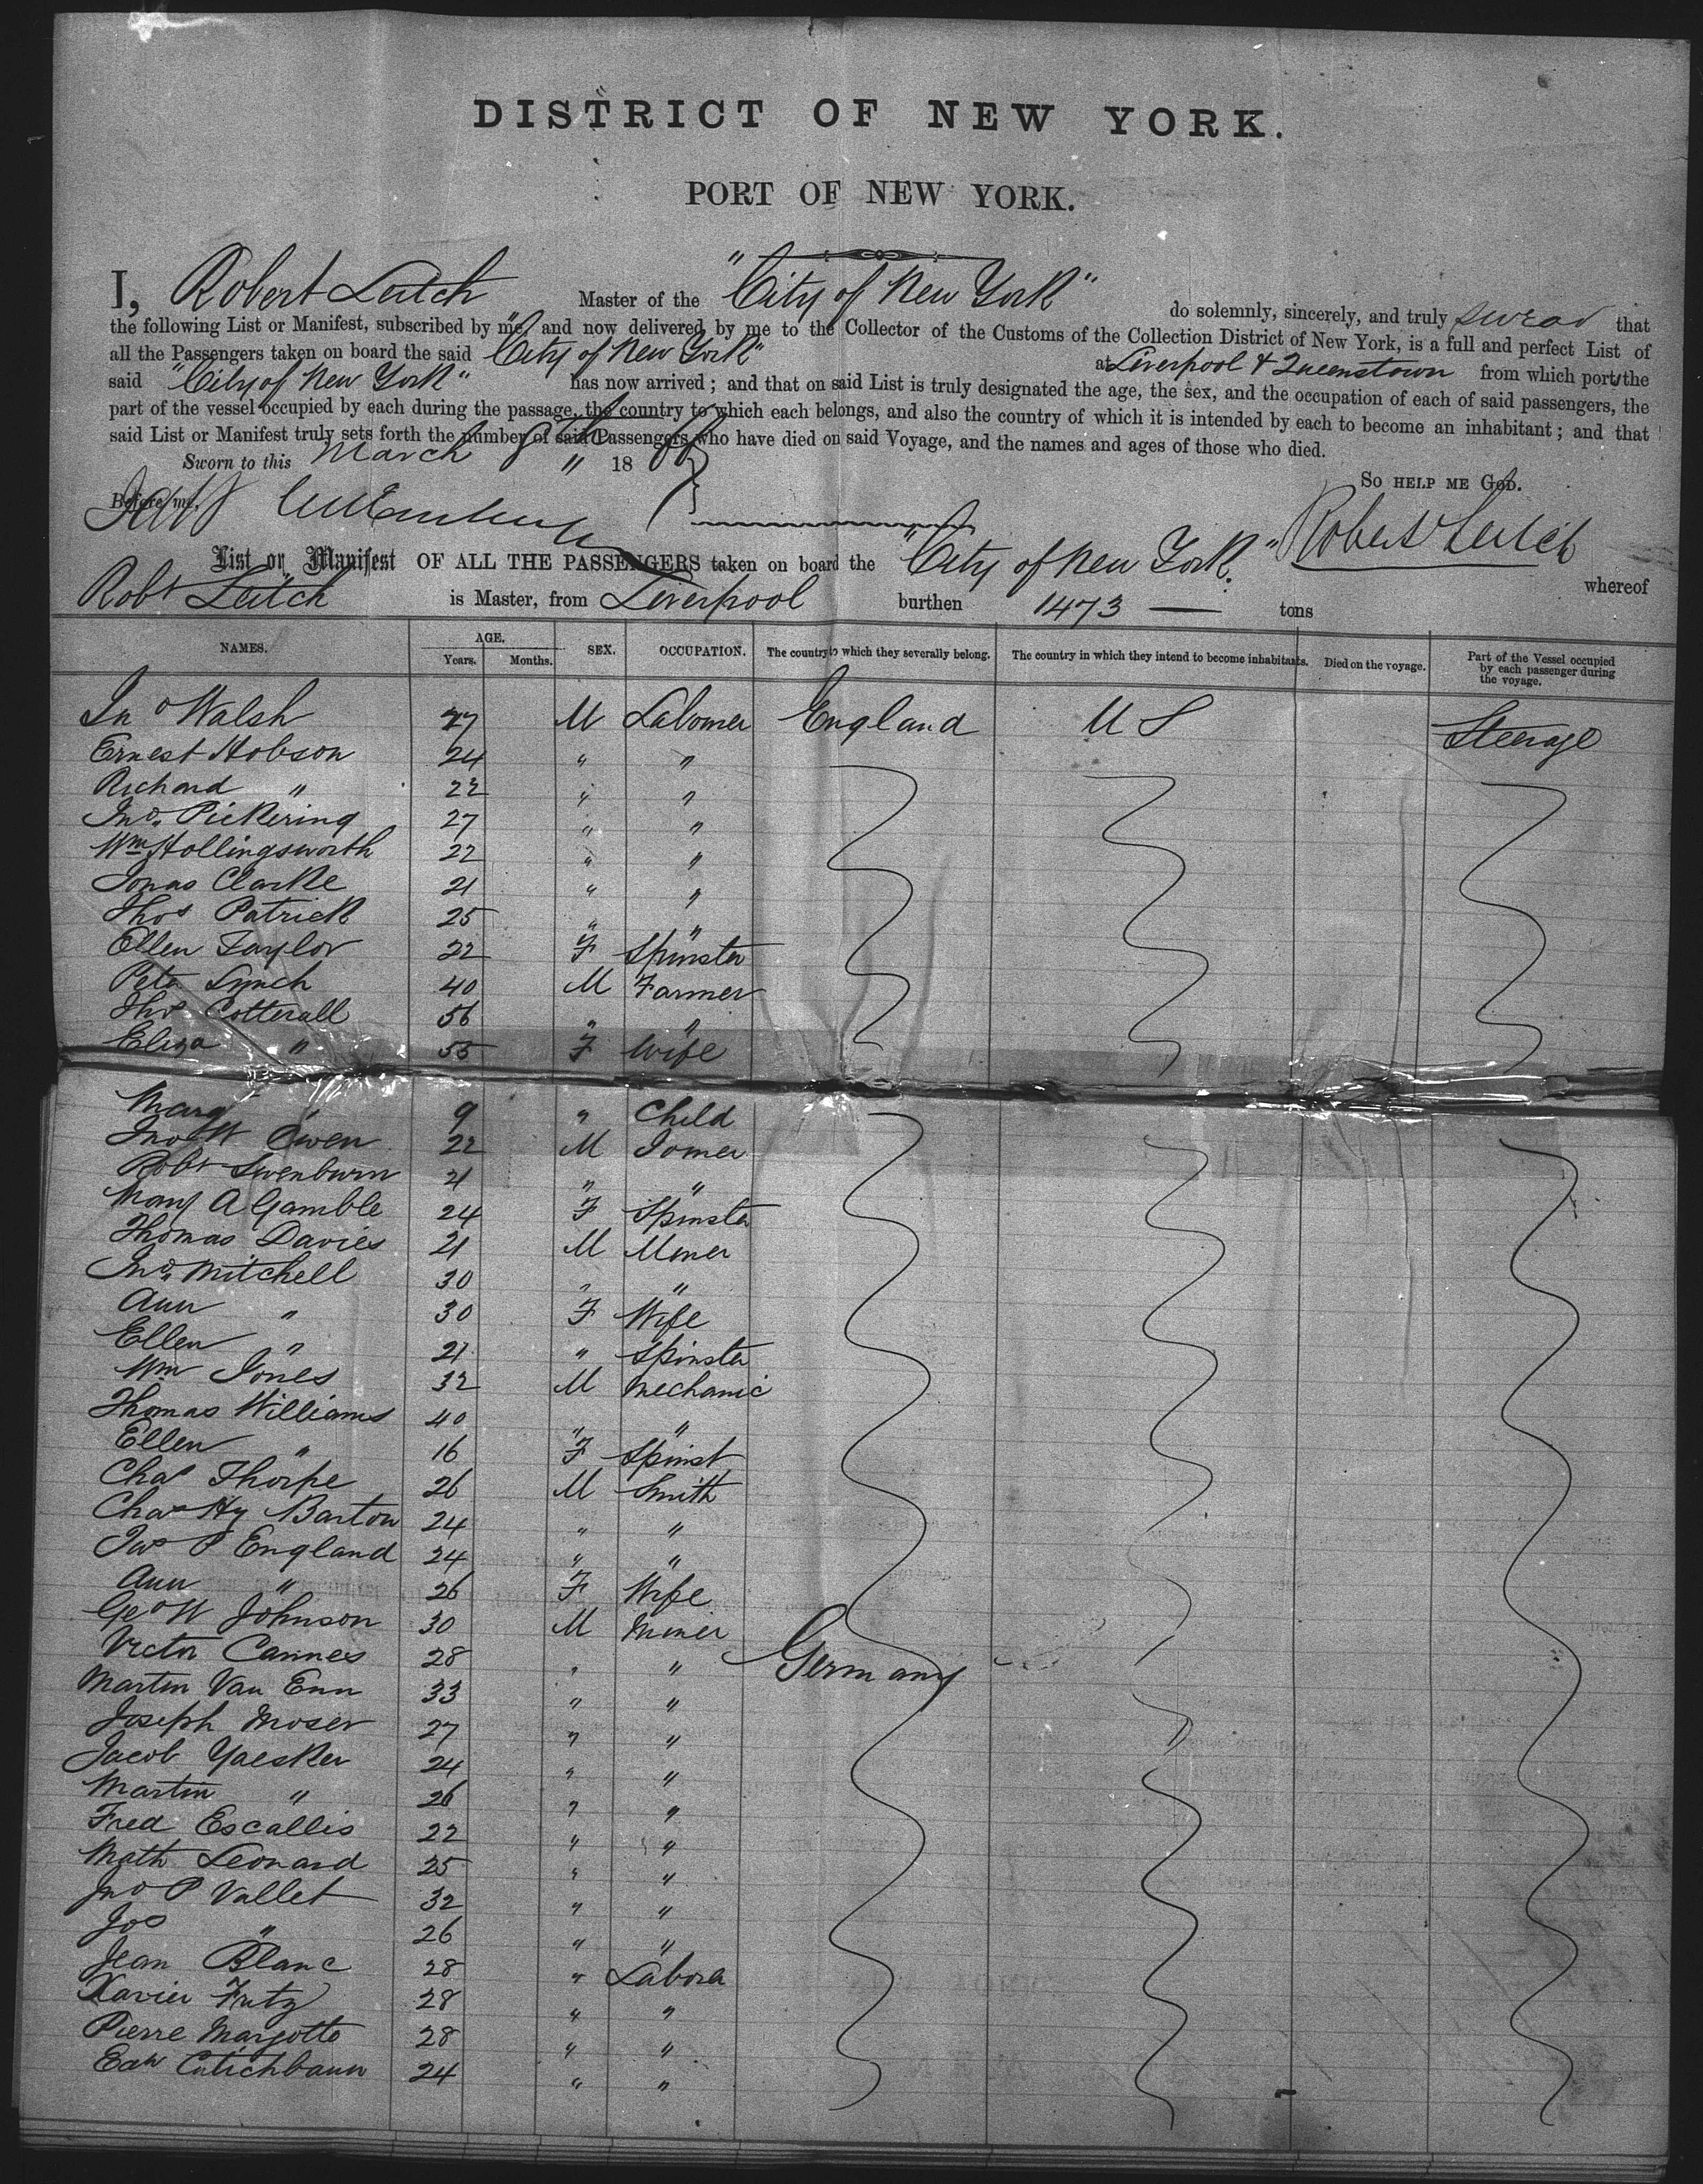 DISTRICT OF NEW YORK.
PORT OF NEW YORK.
I, Robert Leitch Master of the "City of New York" do solemnly, sincerely, and truly swear that
the following List or Manifest, subscribed by me, and now delivered by me to the Collector of the Customs of the Collection District of New York, is a full and perfect List of
all the Passengers taken on board the said "City of New York" at Liverpool & Queenstown from which port the
said "City of New York" has now arrived; and that on said List is truly designated the age, the sex, and the occupation of each of said passengers, the
part of the vessel occupied by each during the passage, the country to which each belongs, and also the country of which it is intended by each to become an inhabitant; and that
said List or Manifest truly sets forth the number of said Passengers who have died on said Voyage, and the names and ages of those who died.
Sworn to this March 8th 18
So HELP ME GOD.
Before me,
Robert Leitch
List or Manifest OF ALL THE PASSENGERS taken on board the "City of New York." whereof
Robt Leitch is Master, from Liverpool burthen 1473 — tons
NAMES. AGE. Years. Months. SEX. OCCUPATION. The country to which they severally belong. The country in which they intend to become inhabitants. Died on the voyage. Part of the Vessel occupied by each passenger during the voyage.
Jno Walsh 27 M Labourer England U S Steerage
Ernest Hobson 24 " "
Richard " 22 " "
Jno. Pickering 27 " "
Wm Hollingsworth 22 " "
Jonas Clarke 21 " "
Thos Patrick 25 " "
Ellen Taylor 22 F Spinster
Peter Lynch 40 M Farmer
Thos Cotterall 56 " "
Eliza " 55 F Wife
Mary " 9 " Child
Jno W Owen 22 M Joiner
Robt Swenburn 21 " "
Mary A Gamble 24 F Spinster
Thomas Davies 21 M Miner
Jno. Mitchell 30 " "
Ann " 30 F Wife
Ellen " 21 " Spinster
Wm Jones 32 M Mechanic
Thomas Williams 40 " "
Ellen " 16 F Spinst
Chas Thorpe 26 M Smith
Chas Hy Barton 24 " "
Jno P England 24 " "
Ann " 26 F Wife
Geo W Johnson 30 M Miner
Victor Cannes 28 " " Germany
Martin Van Enn 33 " "
Joseph Moser 27 " "
Jacob Yaesker 24 " "
Martin " 26 " "
Fred Escallis 22 " "
Math Leonard 25 " "
Jno P Vallet 32 " "
Jos " 26 " "
Jean Blanc 28 " Labora
Xavier Fritz 28 " "
Pierre Margotto 28 " "
Edw Cutichbaun 24 " "